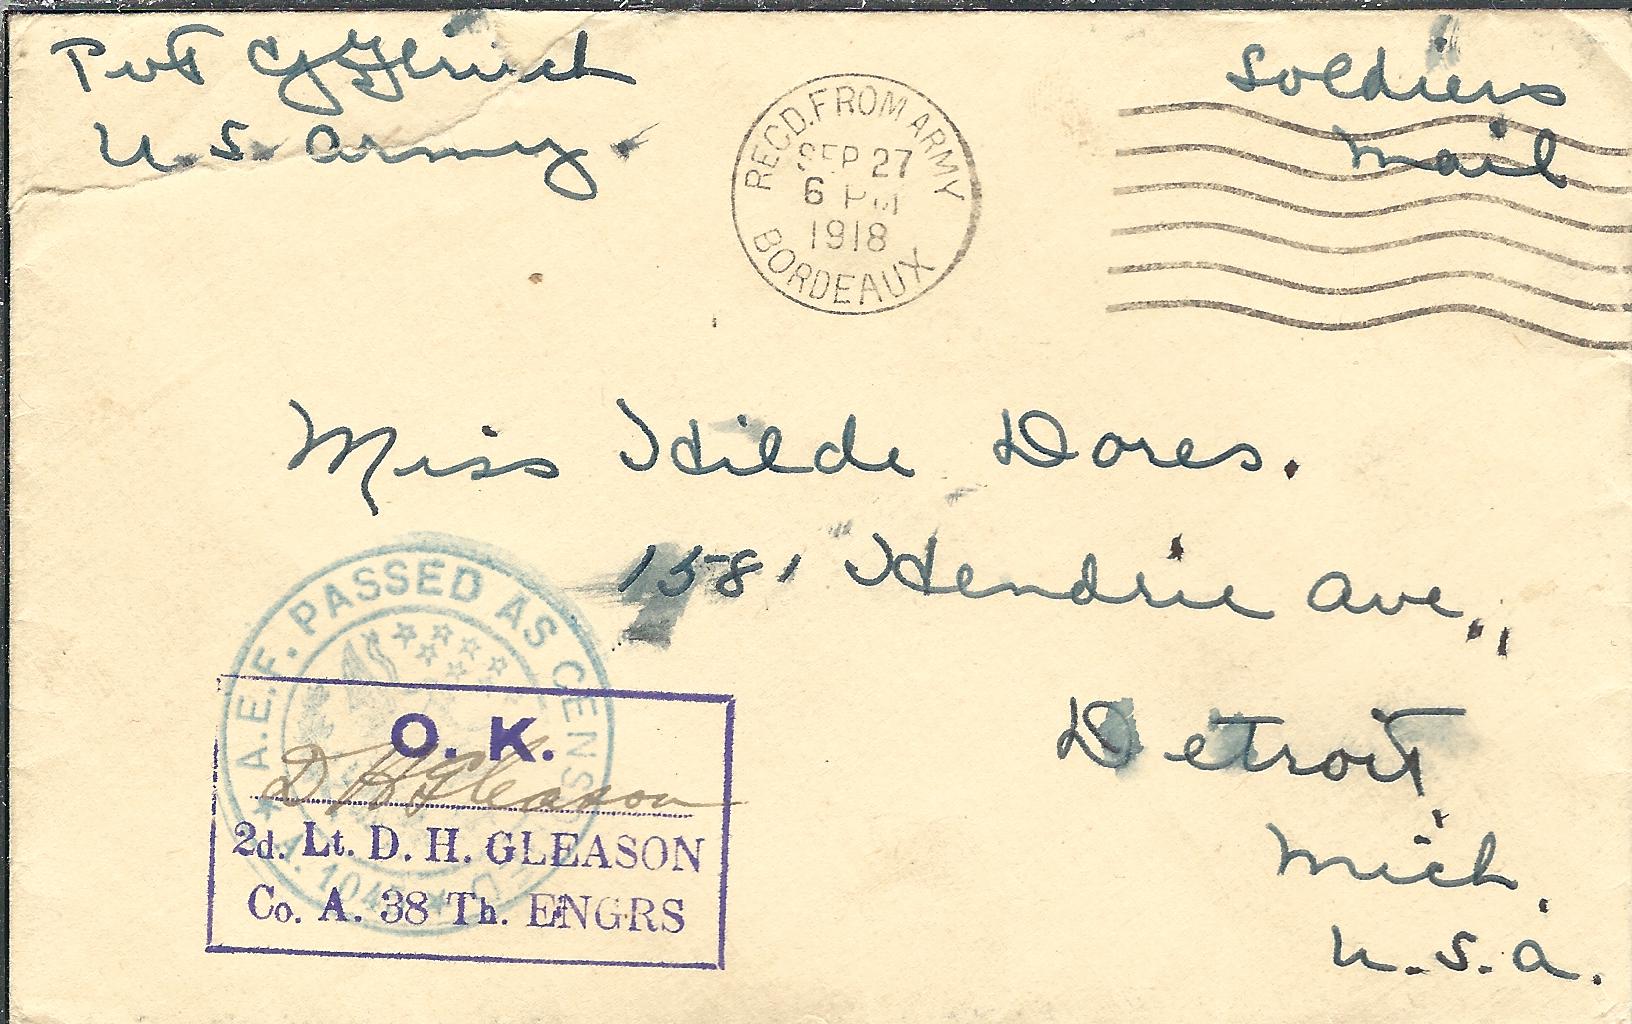 Pvt
U. S. Army.
Soldiers
Mail
RECD. FROM ARMY
SEP 27
6 PM
1918
BORDEAUX
Miss Hilde Dores.
1581 Hendrie Ave,,
Detroit,
Mich.
U.S.A.
A.E.F. PASSED AS CENSORED
O. K.
D H Gleason
2d. Lt. D. H. GLEASON
Co. A. 38 Th. ENGRS